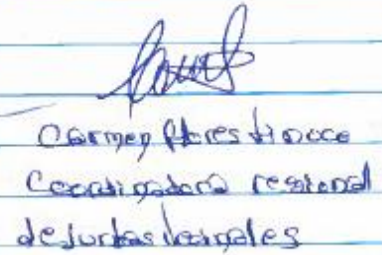 Carmen Flores Tinoco
Coordinadora regional
de Juntas vecinales